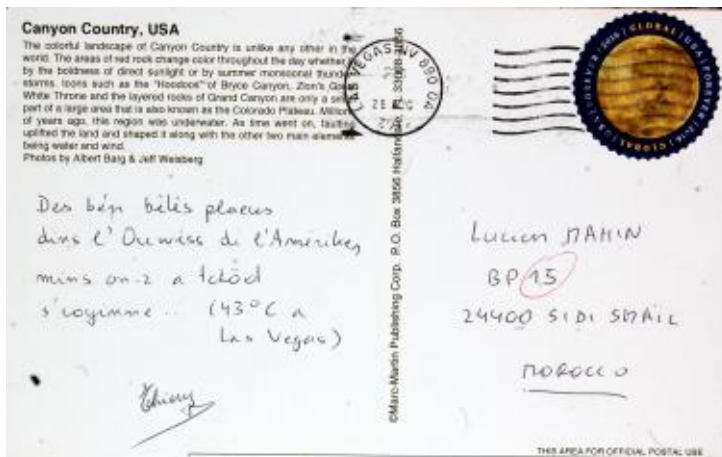 Canyon Country, USA
The colorful landscape of Canyon Country is unlike any other in the
world. The areas of red rock change color throughout the day whether
by the boldness of direct sunlight or by summer monsoonal thunder
storms. Icons such as the "Hoodoos" of Bryce Canyon, Zion's
White Throne and the layered rocks of Grand Canyon are only a
part of a large area that is also known as the Colorado Plateau. Million
of years ago, this region was underwater. As time went on, faulting
uplifted the land and shaped it along with the other two main elements
being water and wind.
Photos by Albert Barg & Jeff Weisberg
Des bén bêlès plaeces
dins l' Ouwess di l'Amerikes
mins on-z a tchôd
s'coyinne .. (43°C a
Las Vegas)
Thierry
©Marc-Martin Publishing Corp. P.O. Box 3856 Hallandale, FL 33008-3856
LAS VEGAS NV 890
GLOBAL USA FOREVER 2016
Lucien MAHIN
BP 15
24400 SIDI SMAIL
MOROCCO
THIS AREA FOR OFFICIAL POSTAL USE